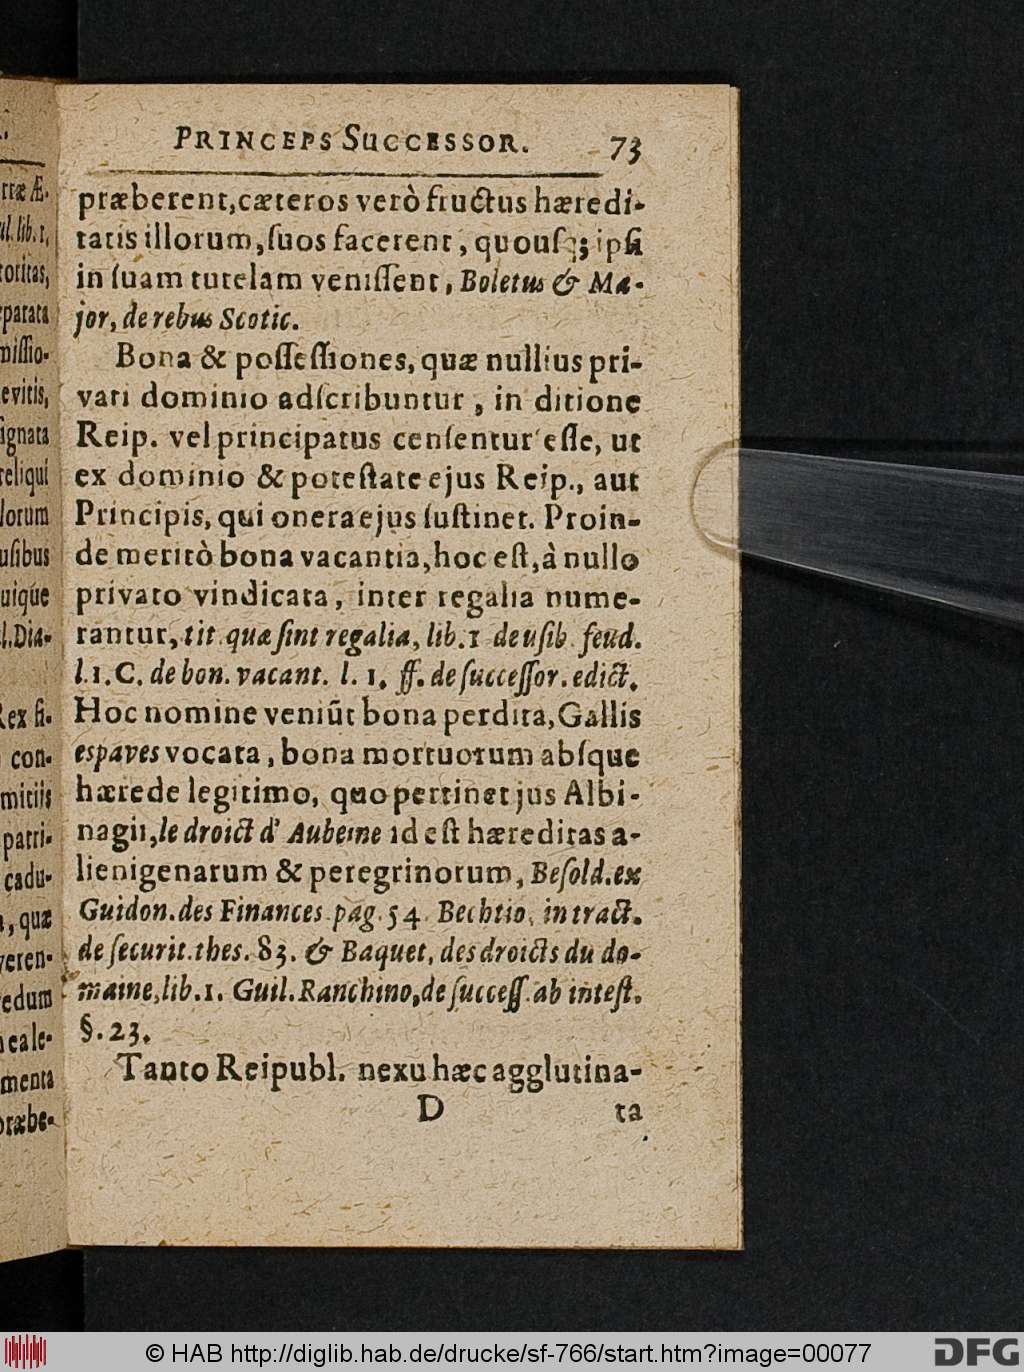 PRINCEPS SUCCESSOR. 73
præberent, cæteros verò fructus hæredi-
tatis illorum, ſuos facerent, quouſq; ipſi
in ſuam tutelam veniſſent, Boletus & Ma-
jor, de rebus Scotic.
Bona & poſſeſſiones, quæ nullius pri-
vati dominio adſcribuntur, in ditione
Reip. vel principatus cenſentur eſſe, ut
ex dominio & poteſtate ejus Reip., aut
Principis, qui onera ejus ſuſtinet. Proin-
de meritò bona vacantia, hoc eſt, à nullo
privato vindicata, inter regalia nume-
rantur, tit. quæ ſint regalia, lib. 1 de uſib. feud.
l. 1. C. de bon. vacant. l. 1. ff. de ſucceſſor. edict.
Hoc nomine veniūt bona perdita, Gallis
espaves vocata, bona mortuorum abſque
hærede legitimo, quo pertinet jus Albi-
nagii, le droict d' Aubeine id eſt hæreditas a-
lienigenarum & peregrinorum, Beſold. ex
Guidon. des Finances pag. 54. Bechtio, in tract.
de ſecurit. thes. 83. & Baquet, des droicts du do-
maine, lib. 1. Guil. Ranchino, de ſucceſſ. ab inteſt.
§. 23.
Tanto Reipubl. nexu hæc agglutina-
D ta
rræ Æ-
ul. lib. 1,
toritas,
parata
miſſio-
evitis,
ignata
reliqui
lorum
uſibus
uique
l. Dia-
Rex ſi-
con-
mitiis
patri-
cadu-
, quæ
veren-
edum
eale-
menta
præbe-
© HAB http://diglib.hab.de/drucke/sf-766/start.htm?image=00077
DFG